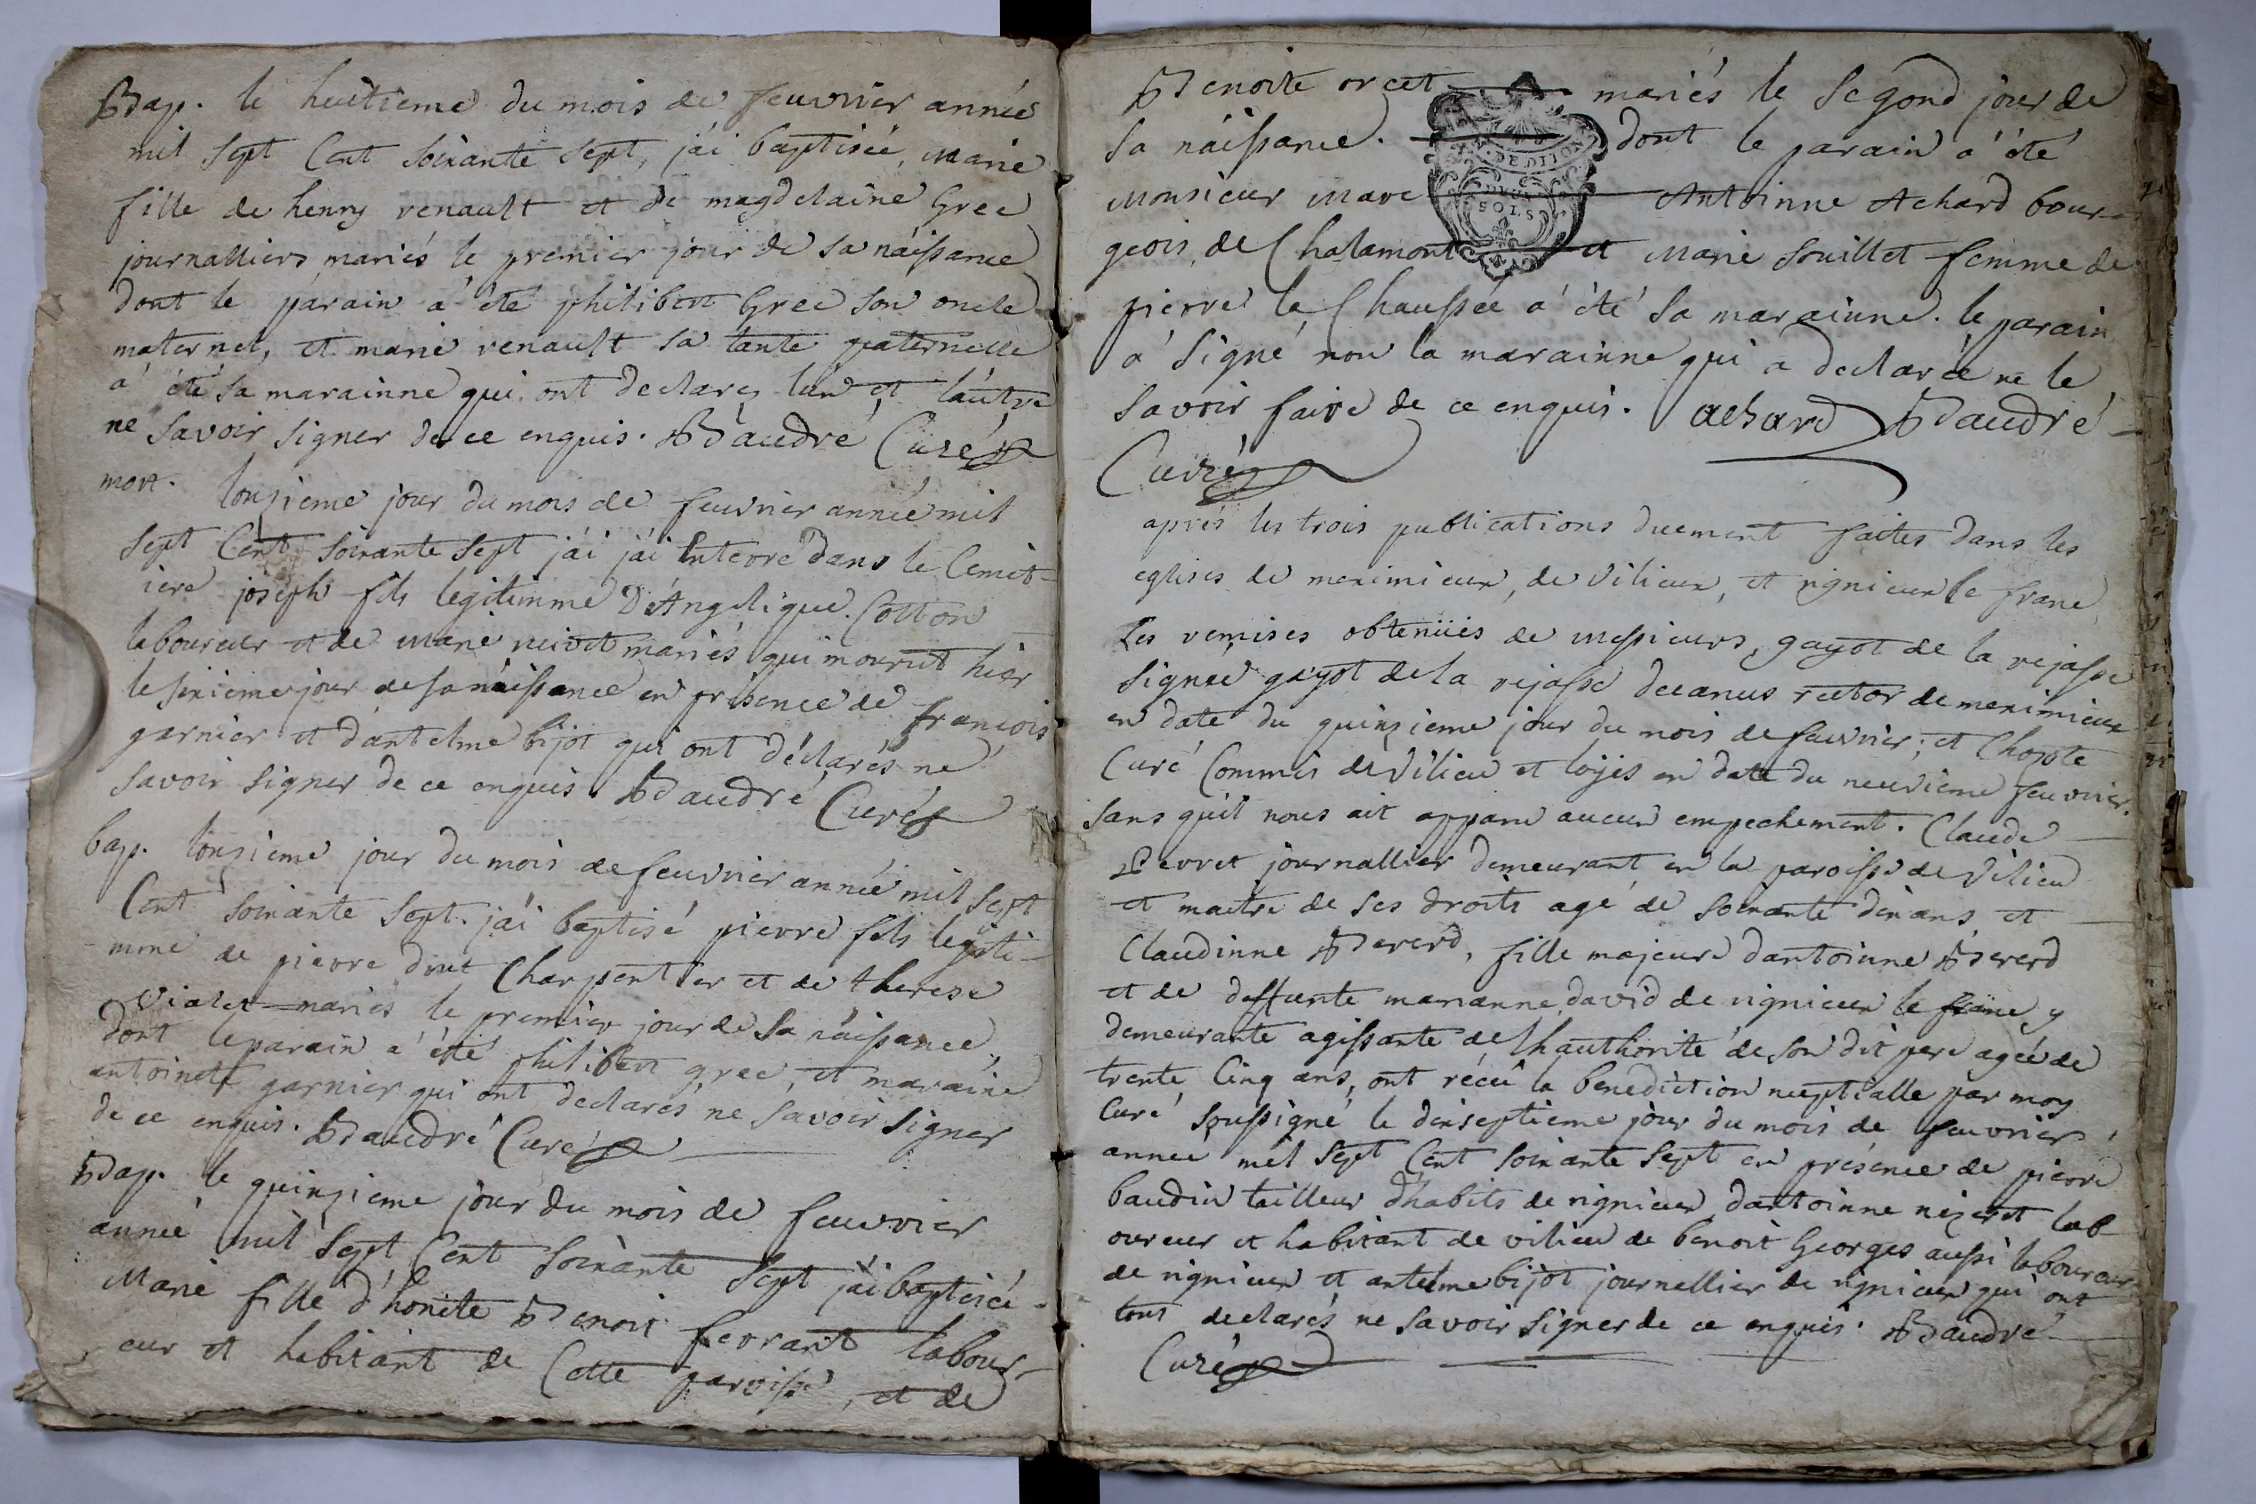 Bap. le huitieme du mois de feuvrier année
mil sept Cent soixante sept, j'ái baptisée, marie
fille de henry renault et de magdelaine Grec
journalliers mariés le premier jour de sa náissance
dont le parain a été philibert Grec son oncle
maternel, et marie renault sa tante paternelle
a été sa marainne qui ont declarés lún et láutre
ne savoir signer de ce enquis. Baudré Curé
mort. lonzieme jour du mois de feuvrier année mil
sept Cent soixante sept j'ái j'ái Enterré dans le Cemet-
iere joseph fils legitimme D'Angelique Cotton
laboureur et de marie mariés qui mourut hier
le sixieme jour de sa náissance en présence de francois
garnier et dántelme bijot qui ont déclarés ne
savoir signer de ce enquis. Baudré Curé
bap. lonzieme jour du mois de feuvrier année mil sept
Cent soixante sept. j'ái baptisé pierre fils legiti-
mme de pierre drut Charpentier et de therese
Vialet mariés le premier jour de sa náissance,
dont le parain a été philibert grec, et maraine
antoinette garnier qui ont declarés ne savoir signer
de ce enquis. Baudré Curé
Bap. le quinzieme jour du mois de feuvrier
année mil sept Cent soixante sept j'ái baptisée
Marie fille d'honéte Benoit ferrant labour-
eur et habitant de Cette paroisse, et de
Benoite orcet mariés le segond jour de
sa náissance. dont le parain a été
Monsieur Marc Antoinne Achard bour-
geois de Chalamont et Marie souillet femme de
pierre la Chaussée a été sa marainne. le parain
a signé non la marainne qui a declarée ne le
savoir faire de ce enquis. achard Baudré
Curé
DE DIJON
SOLS
aprés les trois publications duement faites dans les
eglises de meximieux, de vilieux, et rignieux le franc
Les remises obtenües de messieurs, gayot de la rejasse
signée gayot de la rejasse decanus rector de meximieux
en date du quinzieme jour du mois de feuvrier; et Chopte
Curé Commis de Vilieu et loijes en date du neuvieme feuvrier.
sans quil nous ait apparu aucun empechement. Claude
Pevret journallier demeurant en la paroisse de Vilieu
et maitre de ses droits agé de soixante dix ans, et
Claudinne Bererd, fille majeure dantoinne Bererd
et de deffunte marianne david de rignieux le franc y
demeurante agissante de lhauthorité de son dit pere agée de
trente Cinq ans, ont récu la benediction nuptialle par moy
Curé soussigné le dixseptieme jour du mois de feuvrier
année mil sept Cent soixante sept en présence de pierre
baudin tailleur d'habits de rignieux, dantoinne nizeret lab-
oureur et habitant de vilieu de benoit Georges aussi laboureur
de rignieux et antelme bijot journellier de rignieux qui ont
tous declarés ne savoir signer de ce enquis. Baudré
Curé